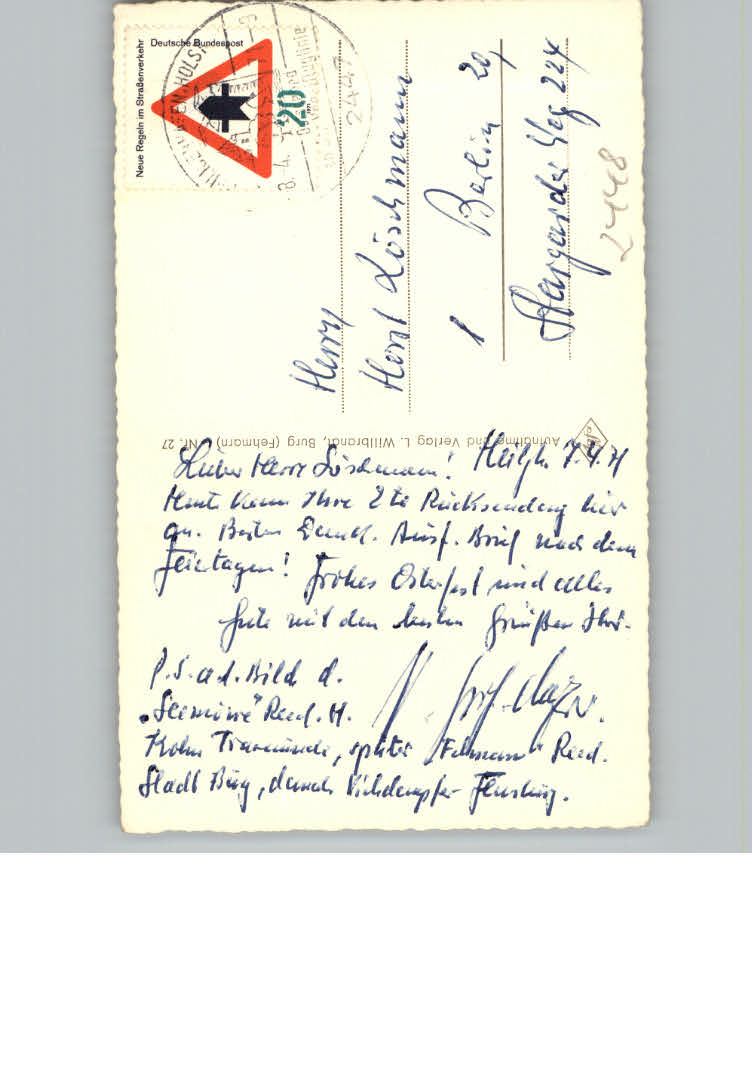 Neue Regeln im Straßenverkehr
Deutsche Bundespost
20
HOLST
2447
Herrn
Horst Löschmann
1 Berlin 20
Stargarder Weg 224
2448
Aufnahme und Verlag L. Willbrandt, Burg (Fehmarn) Nr. 27
Lieber Herr Löschmann! Heilgh. 7.4.71
Heute kam Ihre 2te Rücksendung hier
an. Besten Dank. Ausf. Brief nach den
Feiertagen! Frohes Osterfest und alles
Gute mit den besten Grüßen Ihr
P.S. a.d. Bild d.
"Seemöwe" Reed. H.
Kohn Travemünde, später "Fehmarn" Reed.
Stadt Burg, danach Viehdampfer Flensburg.